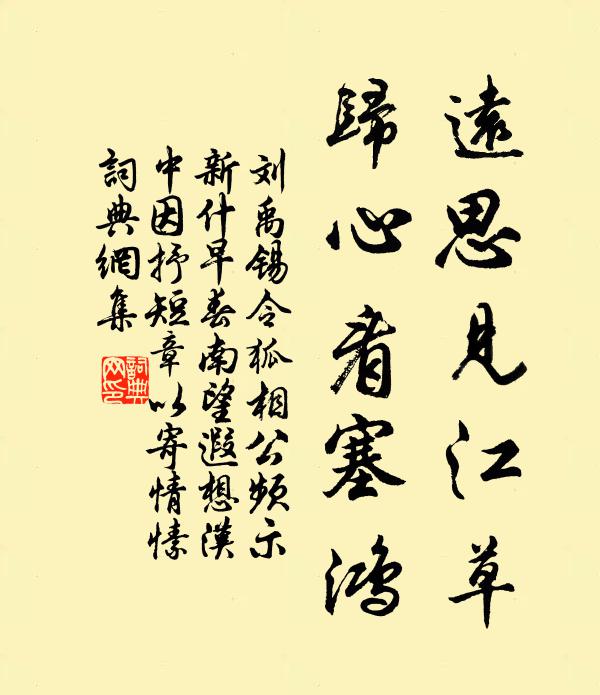 遠思見江草
歸心看塞鴻
刘禹锡令狐相公频示
新什早春南望遐想漢
中因抒短章以寄情愫
詞典網集
詞典網印